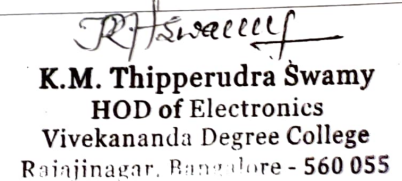 K.M. Thipperudra Swamy
HOD of Electronics
Vivekananda Degree College
Rajajinagar, Bangalore - 560 055